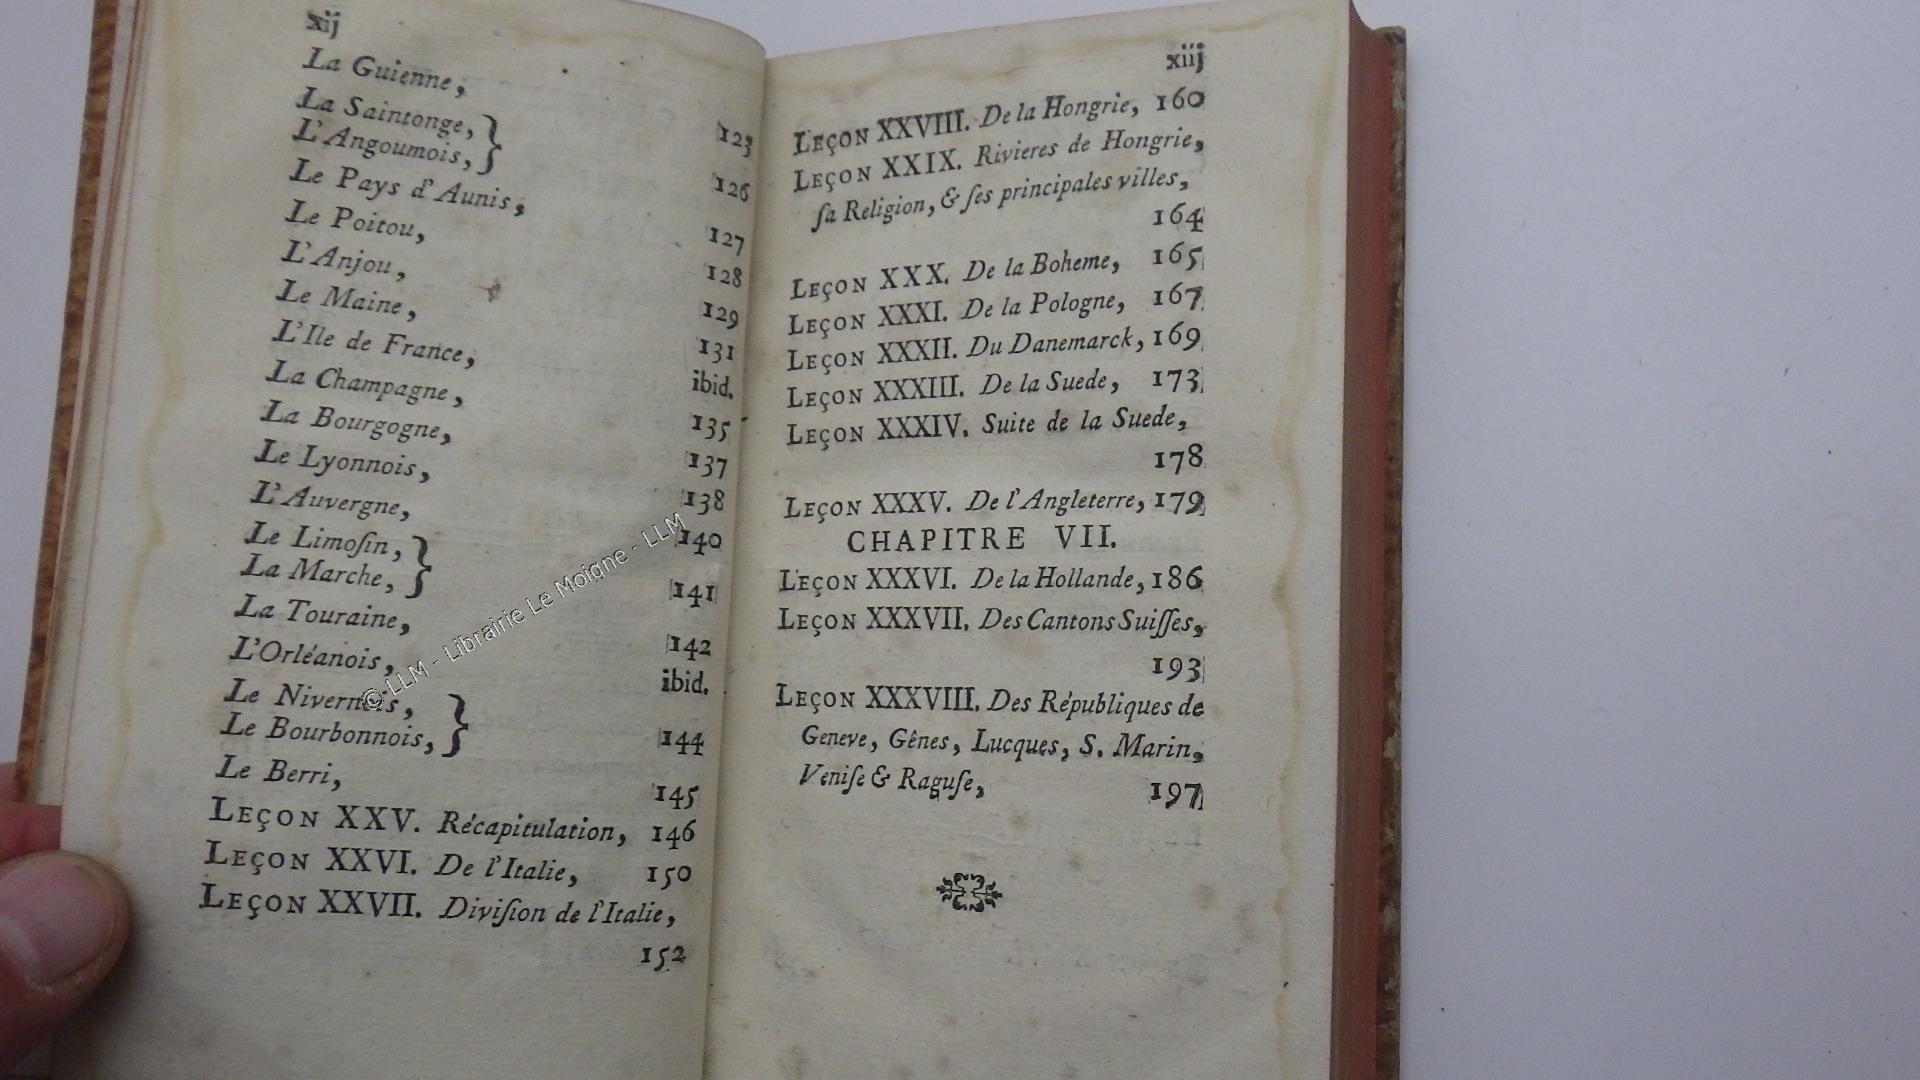 xij
La Guienne, 123
La Saintonge,
L'Angoumois, } 126
Le Pays d'Aunis, 127
Le Poitou, 128
L'Anjou, 129
Le Maine, 131
L'Ile de France, ibid.
La Champagne, 135
La Bourgogne, 137
Le Lyonnois, 138
L'Auvergne, 140
Le Limoſin,
La Marche, } 141
La Touraine, 142
L'Orléanois, ibid.
Le Nivernois,
Le Bourbonnois, } 144
Le Berri, 145
LEÇON XXV. Récapitulation, 146
LEÇON XXVI. De l'Italie, 150
LEÇON XXVII. Diviſion de l'Italie,
152
© LLM - Librairie Le Moigne - LLM
xiij
LEÇON XXVIII. De la Hongrie, 160
LEÇON XXIX. Rivieres de Hongrie,
ſa Religion, & ſes principales villes,
164
LEÇON XXX. De la Boheme, 165
LEÇON XXXI. De la Pologne, 167
LEÇON XXXII. Du Danemarck, 169
LEÇON XXXIII. De la Suede, 173
LEÇON XXXIV. Suite de la Suede,
178
LEÇON XXXV. De l'Angleterre, 179
CHAPITRE VII.
LEÇON XXXVI. De la Hollande, 186
LEÇON XXXVII. Des Cantons Suiſſes,
193
LEÇON XXXVIII. Des Républiques de
Geneve, Gênes, Lucques, S. Marin,
Veniſe & Raguſe, 197